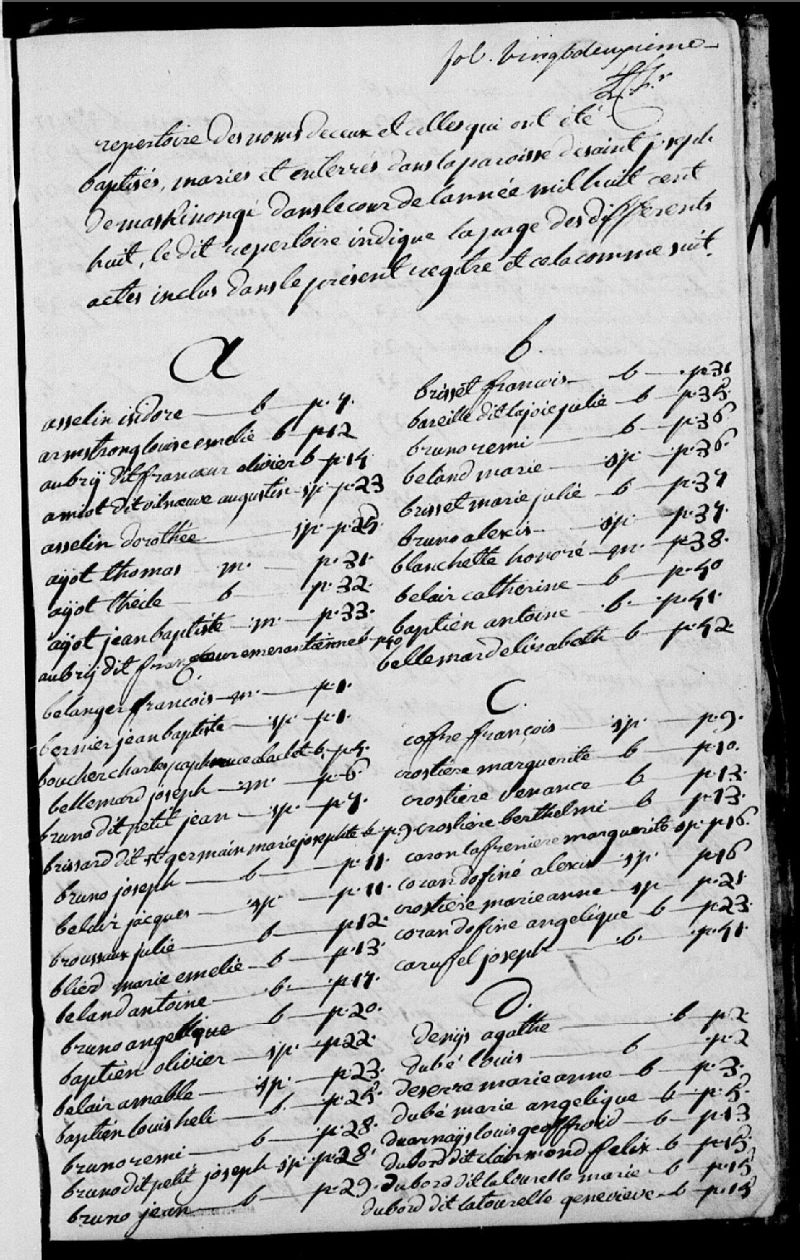 fol. vingtdeuxieme
repertoire des noms de ceux et celles qui ont été
baptisés, mariés et enterrés dans la paroisse de saint joseph
de maskinongé dans le cour de l'année mil huit cent
huit, le dit repertoire indique la page des différents
actes inclus dans le présent regitre et cela comme suit.
a
asselin isidore — b — p. 7.
armstrong louise emelié b — p. 12
aubrÿ dit francœur olivier b — p. 14.
amiot dit vilneuve augustin — sp — p. 23
asselin dorothée — sp — p. 25
aÿot thomas — m. — p. 31.
aÿot thécle — b — p. 32.
aÿot jean baptiste — m. — p. 33.
aubrÿ dit francœur emerantienne b — p. 40
belanger francois — m. — p. 1.
bernier jean baptiste — sp. — p. 1.
boucher charles b — p. 4.
bellemard joseph — m. — p. 6
bruno dit petit jean — sp. — p. 7.
brissard dit st germain marie josephte b — p. 9
bruno joseph — b — p. 11.
belair jacques — sp. — p. 11.
broussaux julie — b — p. 12.
bliérd marie emelié — b — p. 13.
beland antoine — b. — p. 17.
bruno angelique — b — p. 20.
baptién olivier — sp. — p. 22.
belair amable — sp. — p. 23.
baptién louis heli — b — p. 25.
bruno remi — b — p. 28.
bruno dit petit joseph sp. — p. 28.
bruno jean — b — p. 29.
b.
brisset francois — b — p. 31
bareille dit lajoie julie — b — p. 35.
bruno remi — b — p. 36
beland marie — sp. — p. 36.
brisset marie julié — b — p. 37
bruno alexis — sp. — p. 37.
blanchette honoré — m. — p. 38.
belair catherine — b — p. 40
baptién antoine — b. — p. 41.
bellemard elisabeth — b — p. 42.
C.
coffre françois — sp. — p. 9.
crostiére marguerite — b — p. 10.
crostiére venance — b — p. 12.
crostiére berthelmi — b — p. 13.
caron lafreniere marguerite sp. p. 16
coran dofiné alexis — sp. — p. 16
crostiére marie anne — sp. — p. 21.
coran dofine angelique — b — p. 23.
carufel joseph — b. — p. 41.
d.
denÿs agathe — b — p. 2
dubé louis — b — p. 2
deserre marie anne — b — p. 3.
dubé marie angelique — b — p. 5.
duarnaÿs louis geoffroid — b — p. 13
dubord dit clairmond felix — b — p. 15.
dubord dit latourelle marie — b — p. 15
dubord dit latourelle genevieve — b — p. 15